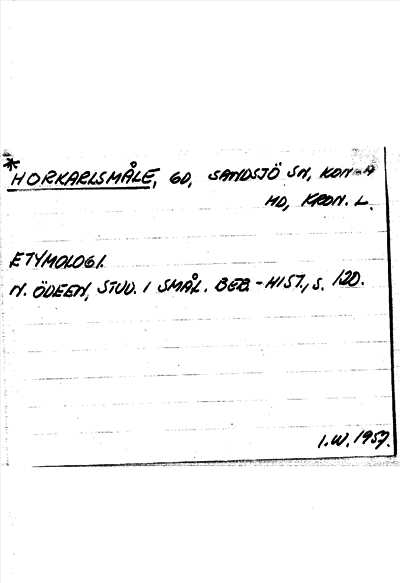 *
HORKARLSMÅLE, GD, SANDSJÖ SN, KON-A
HD, KRON. L.
ETYMOLOGI.
N. ÖDEEN, STUD. I SMÅL. BEB.-HIST., S. 120.
I.W. 1957.